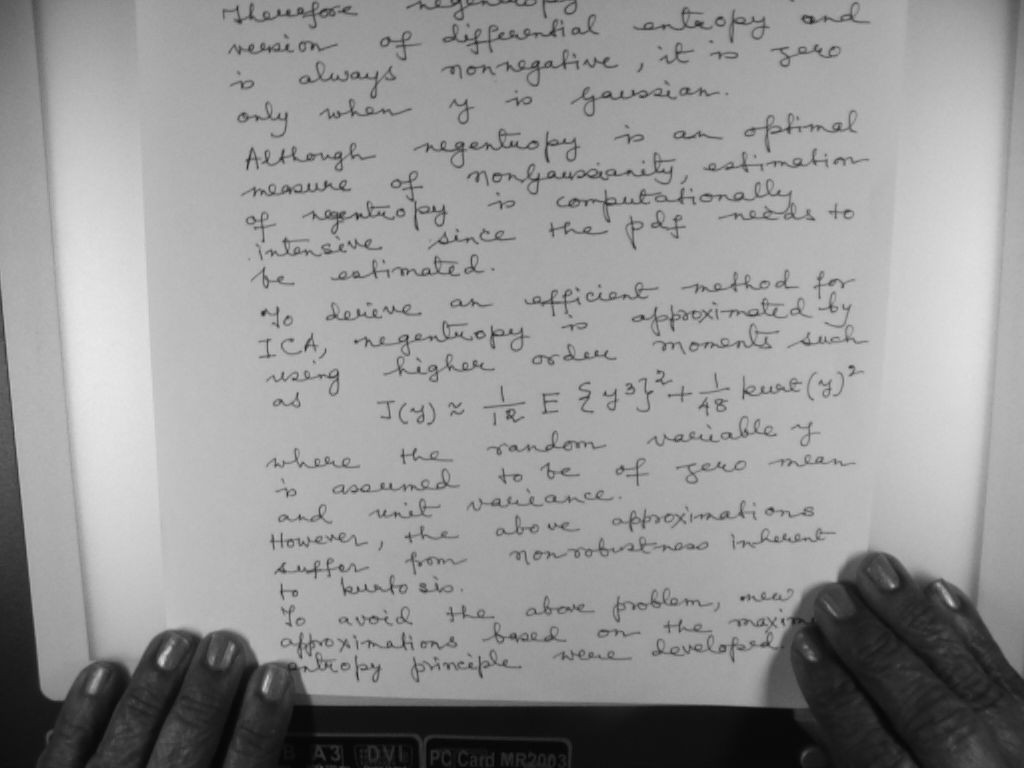 Therefore negentropy
version of differential entropy and
is always nonnegative, it is zero
only when y is Gaussian.
Although negentropy is an optimal
measure of nonGaussianity, estimation
of negentropy is computationally
intensive since the pdf needs to
be estimated.
To derive an efficient method for
ICA, negentropy is approximated by
using higher order moments such
as J(y) ≈ 1/12 E {y³}² + 1/48 kurt(y)²
where the random variable y
is assumed to be of zero mean
and unit variance.
However, the above approximations
suffer from nonrobustness inherent
to kurtosis.
To avoid the above problem, new
approximations based on the maxim
entropy principle were developed.
A3 DVI PC Card MR2003